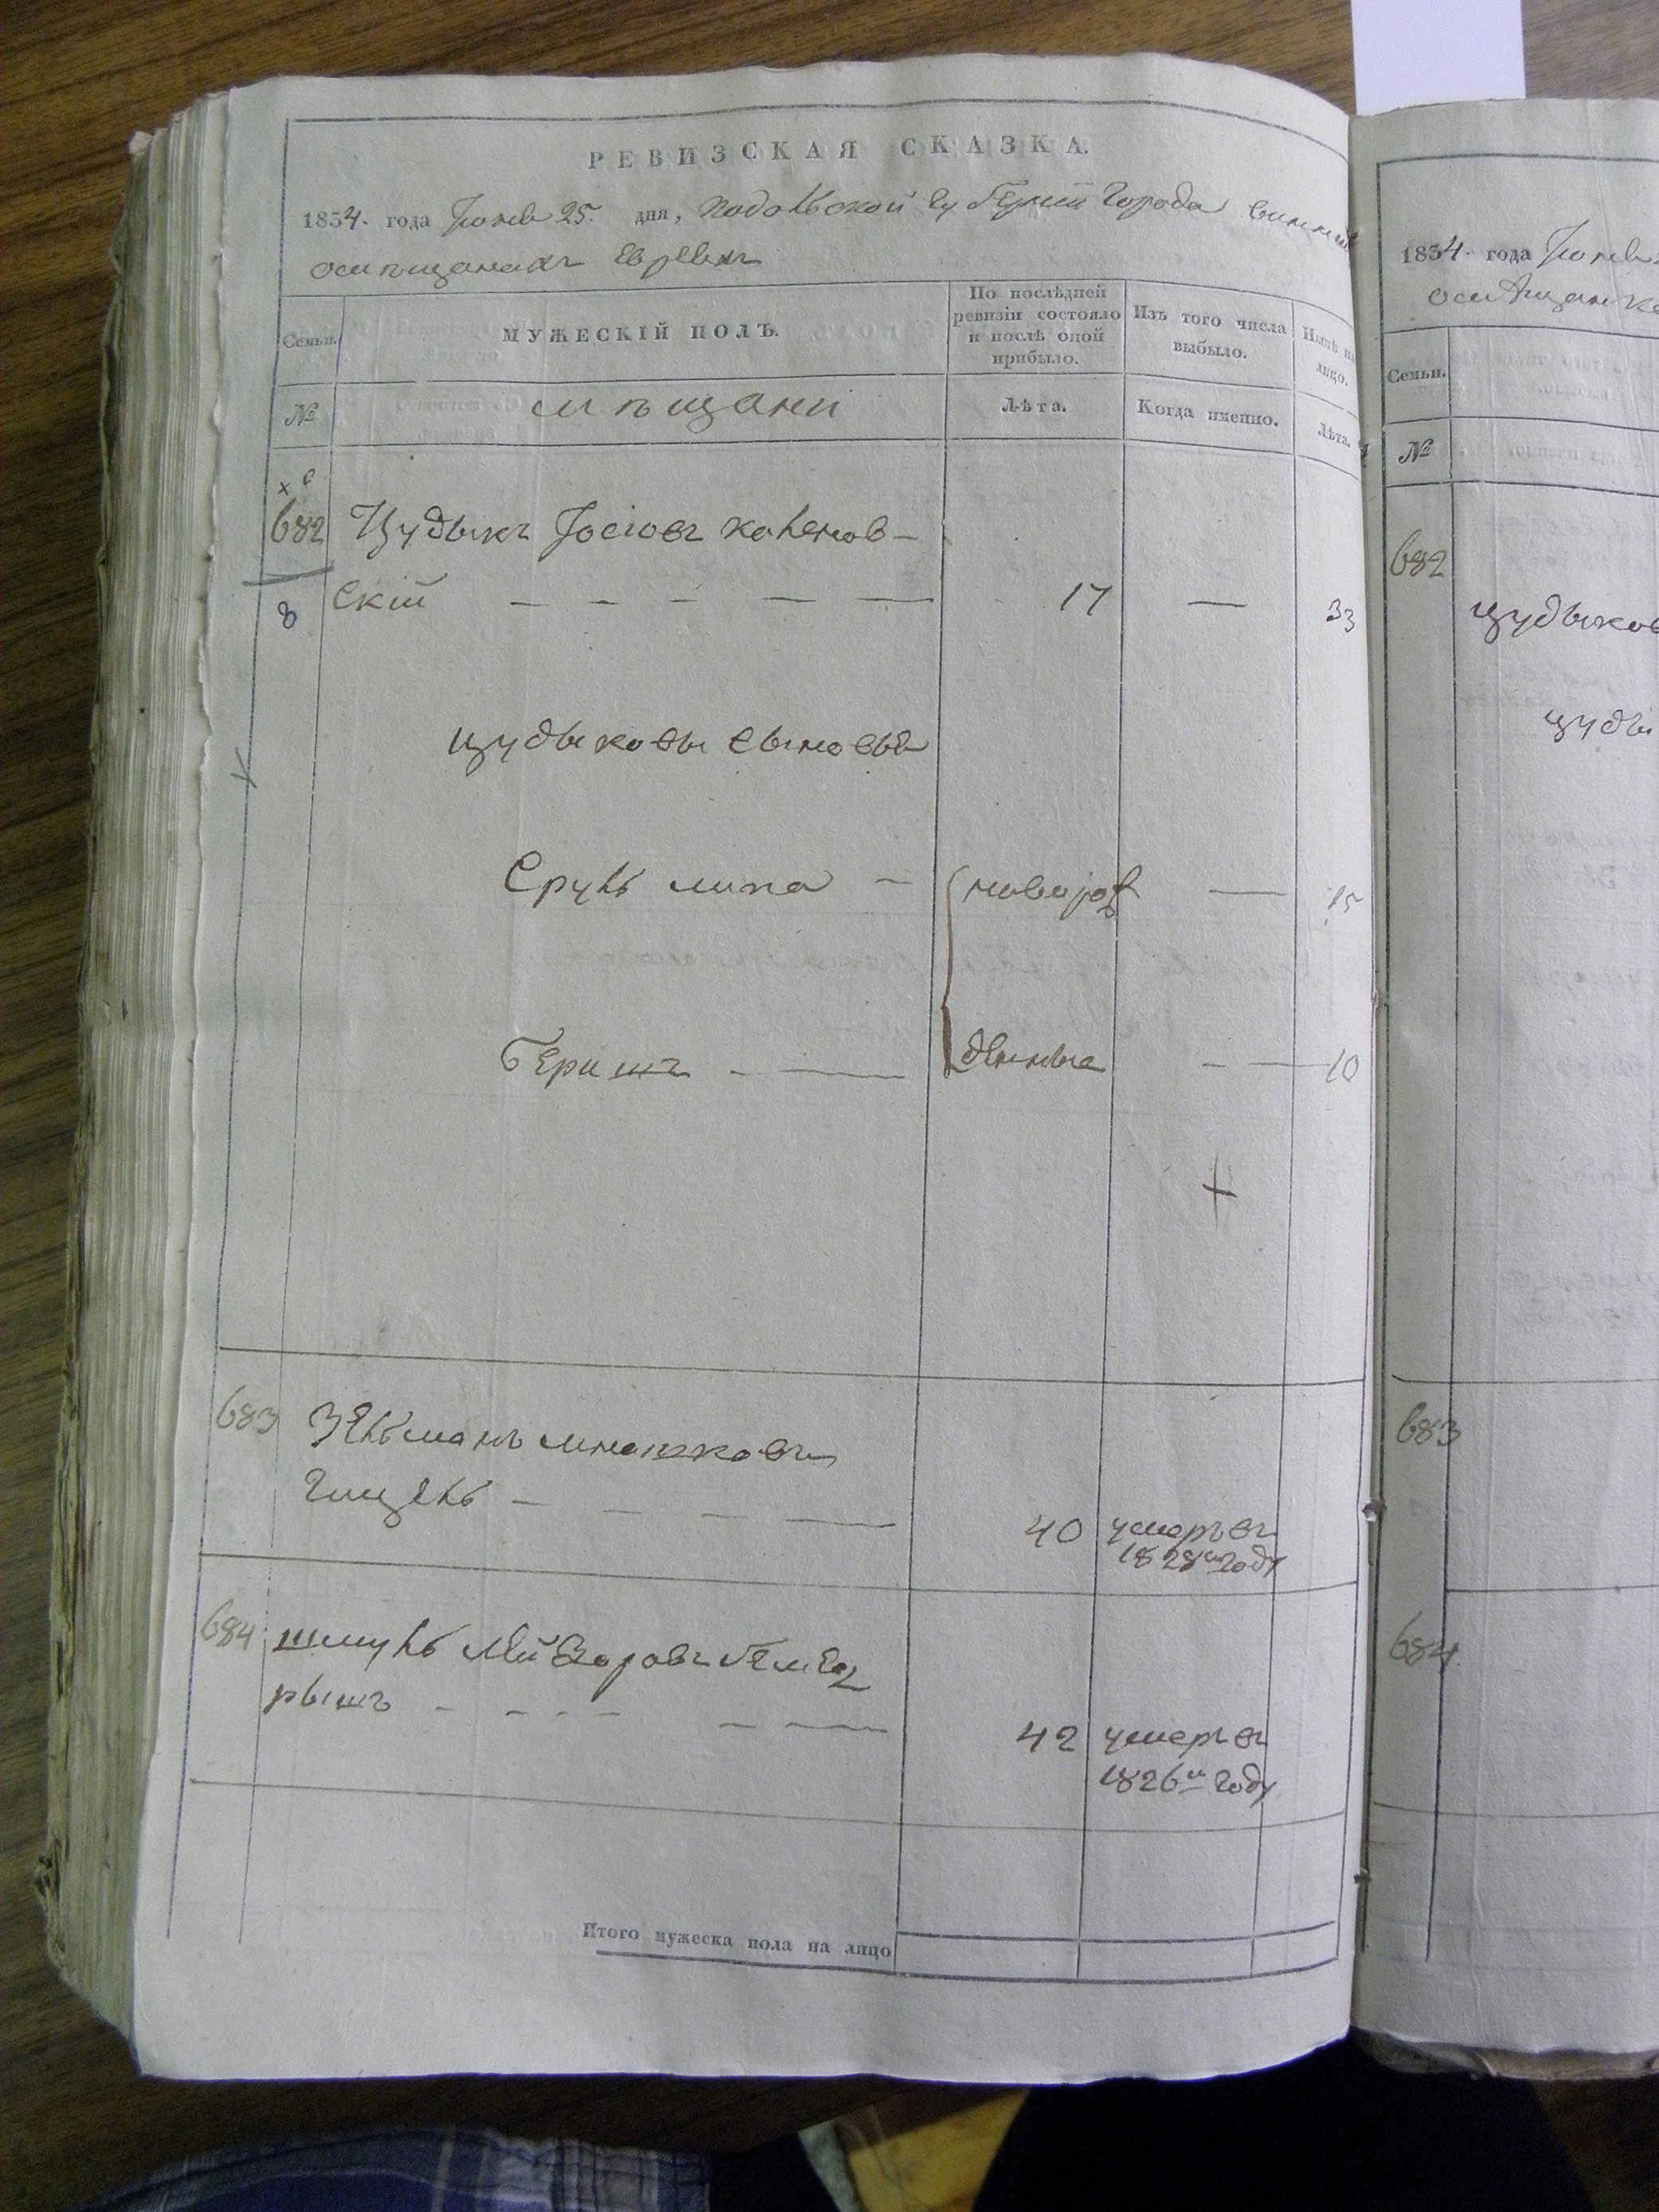 РЕВИЗСКАЯ СКАЗКА.
1834. года Іюня 25. дня, Подольской Губерніи города
о мѣщанахъ Евреяхъ
Семьи.
МУЖЕСКІЙ ПОЛЪ.
По послѣдней ревизіи состояло и послѣ оной прибыло.
Изъ того числа выбыло.
Нынѣ на лицо.
№
мѣщани
Лѣта.
Когда именно.
Лѣта.
682 Цудыкъ Іосіовъ
8 скій — — — — — 17 — 33
цудыковы сыновья
Сруль — новорож — 15
Беришъ — — денные — — 10
683 Зельманъ
— — — — 40 умеръ въ
1828м году
684 Шмуль
рышъ — — — — — — 42 умеръ въ
1826м году
Итого мужеска пола на лицо
1834. года Іюня
Семьи.
№
682
цудыков
цуды
683
684.